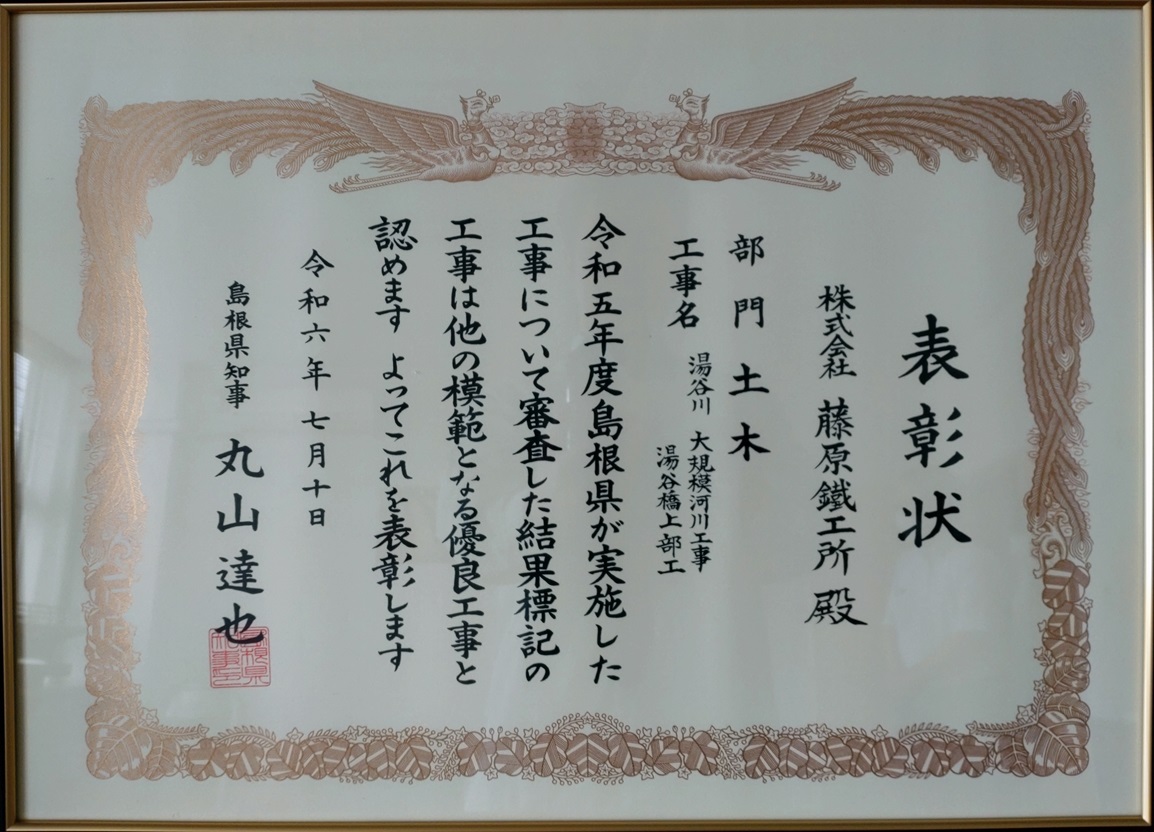 表彰状
株式会社 藤原鐵工所 殿
部門 土木
工事名 湯谷川 大規模河川工事
湯谷橋上部工
令和五年度島根県が実施した
工事について審査した結果標記の
工事は他の模範となる優良工事と
認めます よってこれを表彰します
令和六年 七月十日
島根県知事 丸山達也
島根県
知事之印